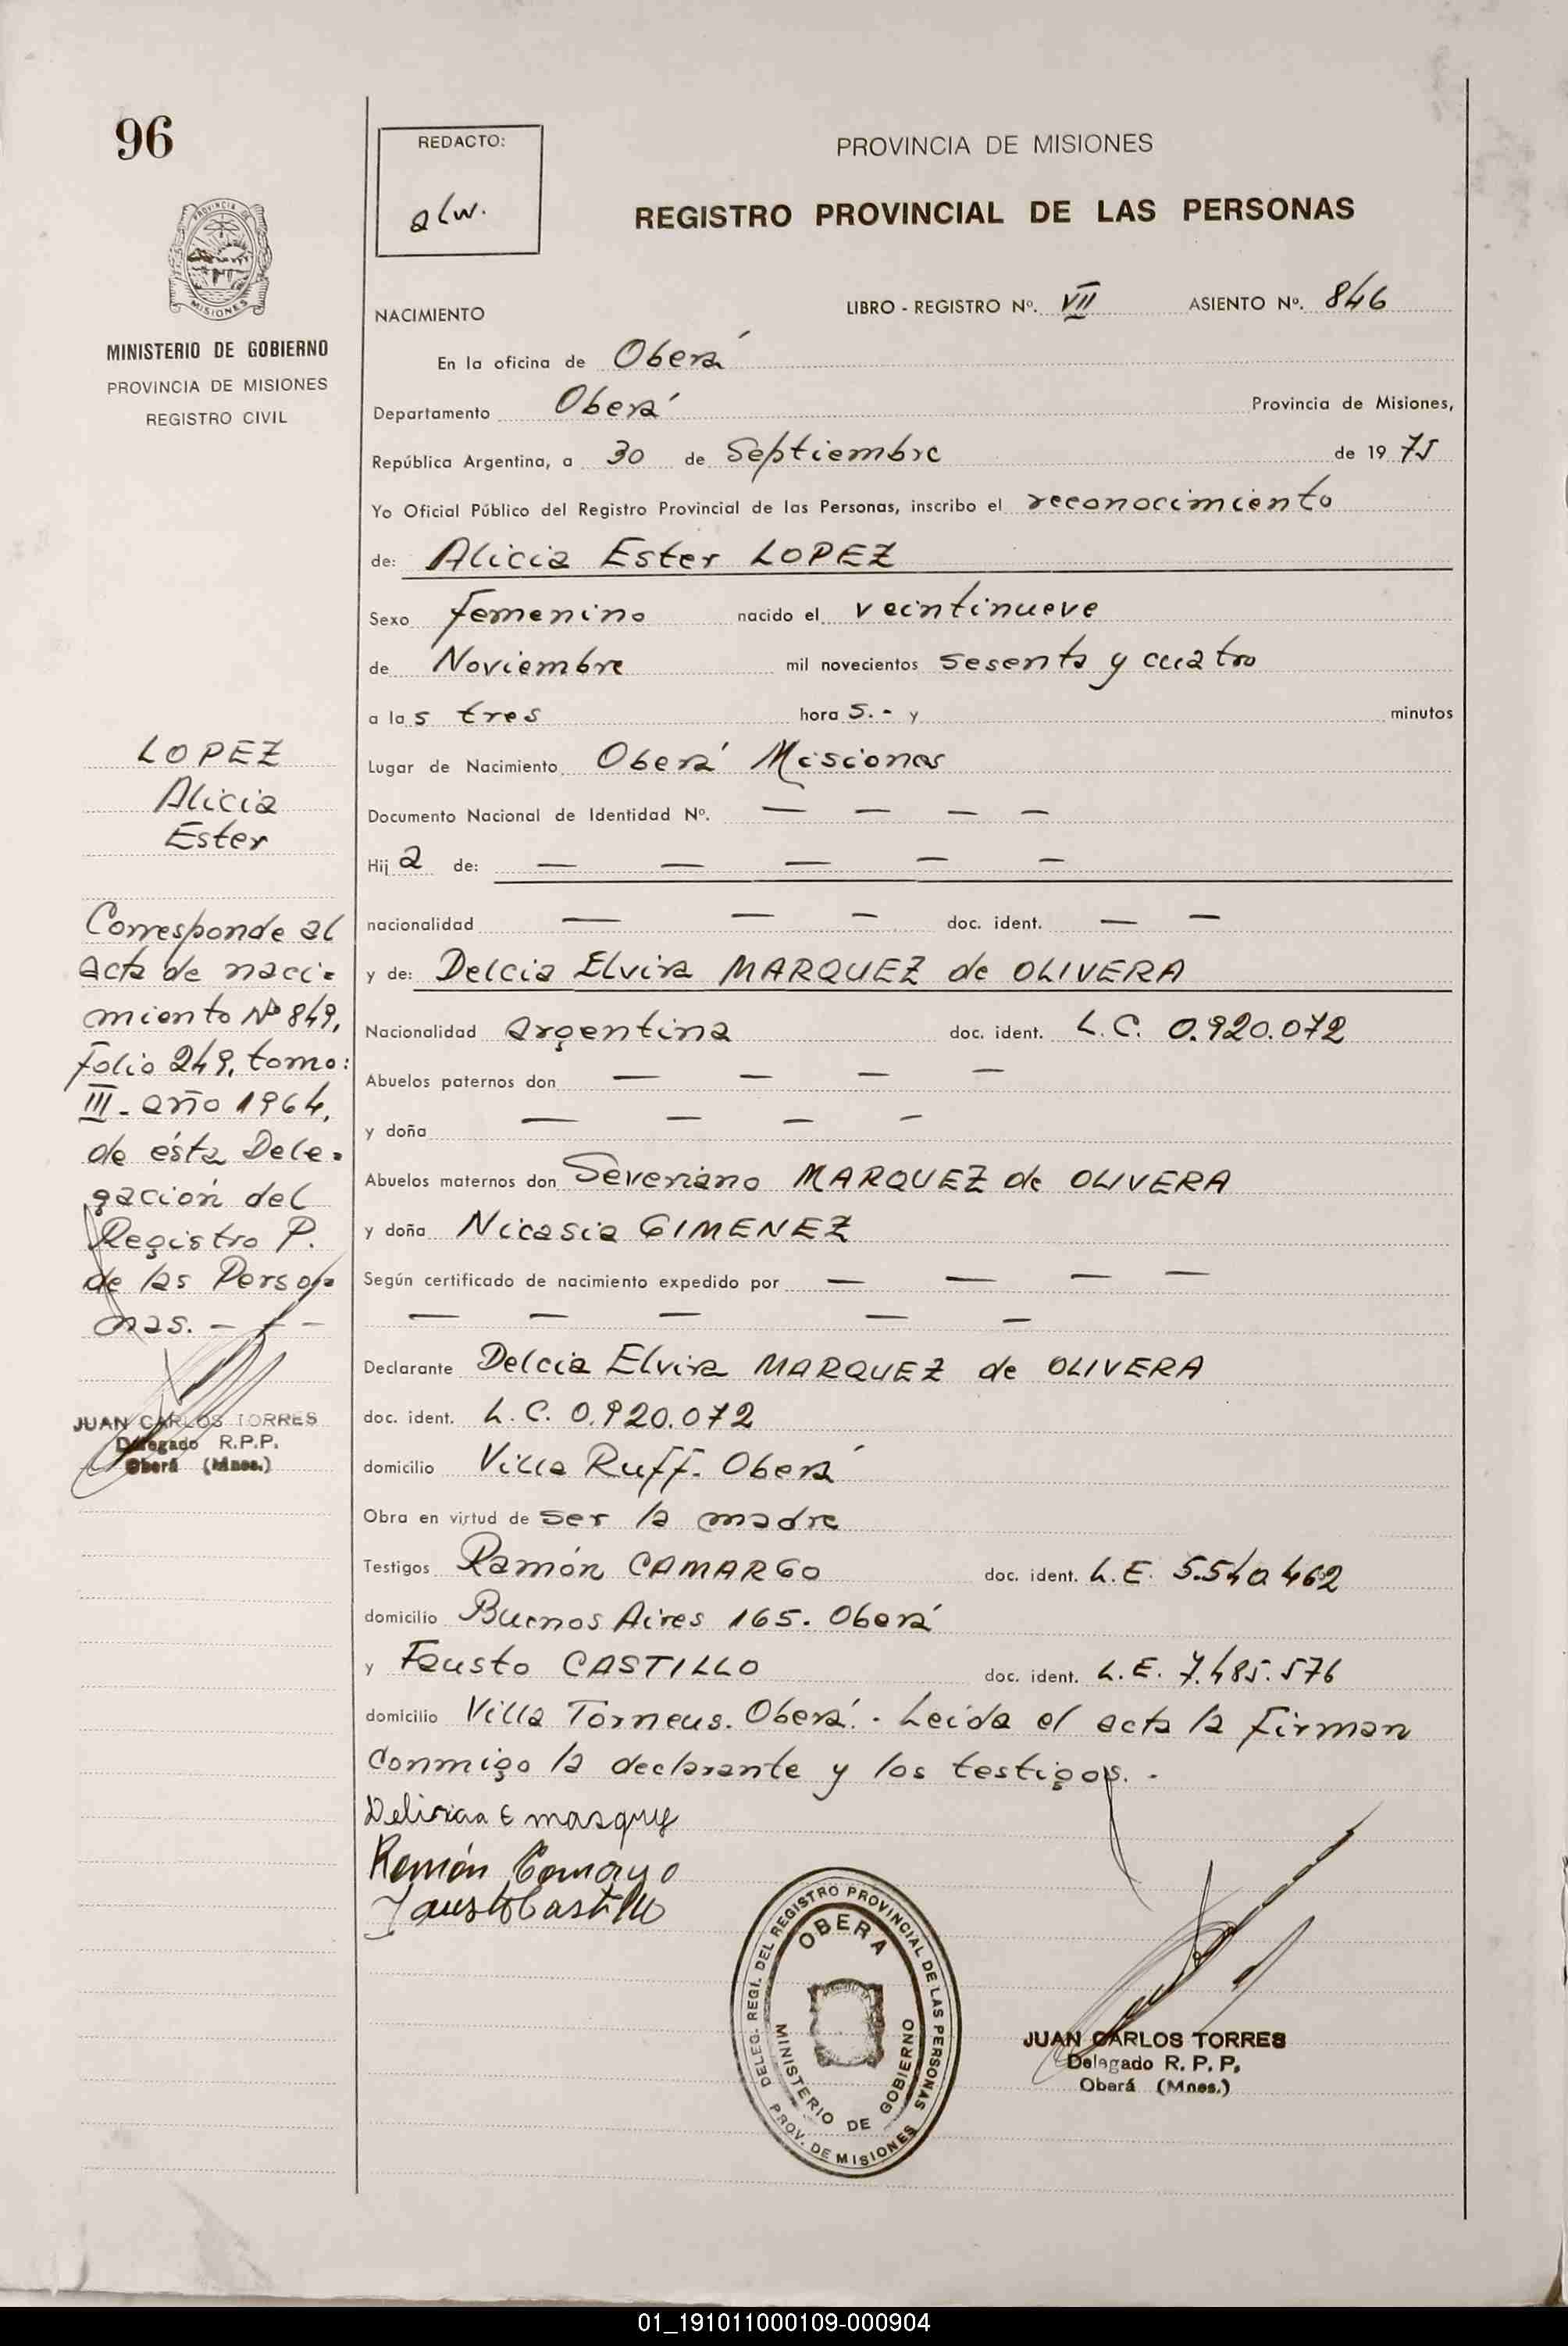 96
PROVINCIA DE MISIONES
MINISTERIO DE GOBIERNO
PROVINCIA DE MISIONES
REGISTRO CIVIL
REDACTO:
alw.
PROVINCIA DE MISIONES
REGISTRO PROVINCIAL DE LAS PERSONAS
NACIMIENTO LIBRO - REGISTRO Nº. VII ASIENTO Nº. 846
En la oficina de Oberá
Departamento Oberá Provincia de Misiones,
República Argentina, a 30 de Septiembre de 1975
Yo Oficial Público del Registro Provincial de las Personas, inscribo el reconocimiento
de: Alicia Ester LOPEZ
Sexo femenino nacido el veintinueve
de Noviembre mil novecientos sesenta y cuatro
a las tres horas.- y minutos
Lugar de Nacimiento Oberá Misiones
Documento Nacional de Identidad Nº. — — — —
Hija de: — — — — —
nacionalidad — — — doc. ident. — —
y de: Delcia Elvira MARQUEZ de OLIVERA
Nacionalidad argentina doc. ident. L.C. 0.920.072
Abuelos paternos don — — — —
y doña — — — —
Abuelos maternos don Severiano MARQUEZ de OLIVERA
y doña Nicasia GIMENEZ
Según certificado de nacimiento expedido por — — — —
— — — — —
Declarante Delcia Elvira MARQUEZ de OLIVERA
doc. ident. L.C. 0.920.072
domicilio Villa Ruff. Oberá
Obra en virtud de ser la madre
Testigos Ramón CAMARGO doc. ident. L.E. 5.540.462
domicilio Buenos Aires 165. Oberá
y Fausto CASTILLO doc. ident. L.E. 7.485.576
domicilio Villa Torneus. Oberá.- Leída el acta la firman
conmigo la declarante y los testigos.-
E
Ramón Camargo
Fausto Castillo
LOPEZ
Alicia
Ester
Corresponde al
acta de naci=
miento Nº 849,
Folio 249, tomo:
III - año 1964,
de ésta Dele=
gación del
Registro P.
de las Perso=
nas. - - -
JUAN CARLOS TORRES
Delegado R.P.P.
Oberá (Mnes.)
DELEG. REGI. DEL REGISTRO PROVINCIAL DE LAS PERSONAS
OBERA
MINISTERIO DE GOBIERNO
PROV. DE MISIONES
JUAN CARLOS TORRES
Delegado R. P. P.
Oberá (Mnes.)
01_191011000109-000904